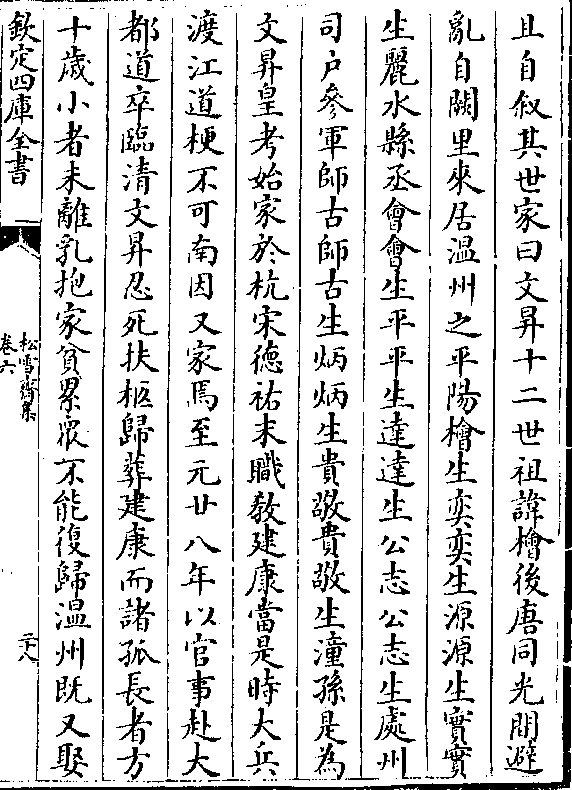 且自叙其世家曰文昇十二世祖諱檜後唐同光間避
亂自闕里來居温州之平陽檜生奕奕生源源生實實
生麗水縣丞會會生平平生達達生公志公志生處州
司户參軍師古師古生炳炳生貴敬貴敬生潼孫是為
文昇皇考始家於杭宋德祐末職教建康當是時大兵
渡江道梗不可南因又家焉至元廿八年以官事赴大
都道卒臨清文昇忍死扶柩歸葬建康而諸孤長者方
十歲小者未離乳抱家貧累眾不能復歸温州既又娶
欽定四庫全書
松雪齋集
卷六
二十八